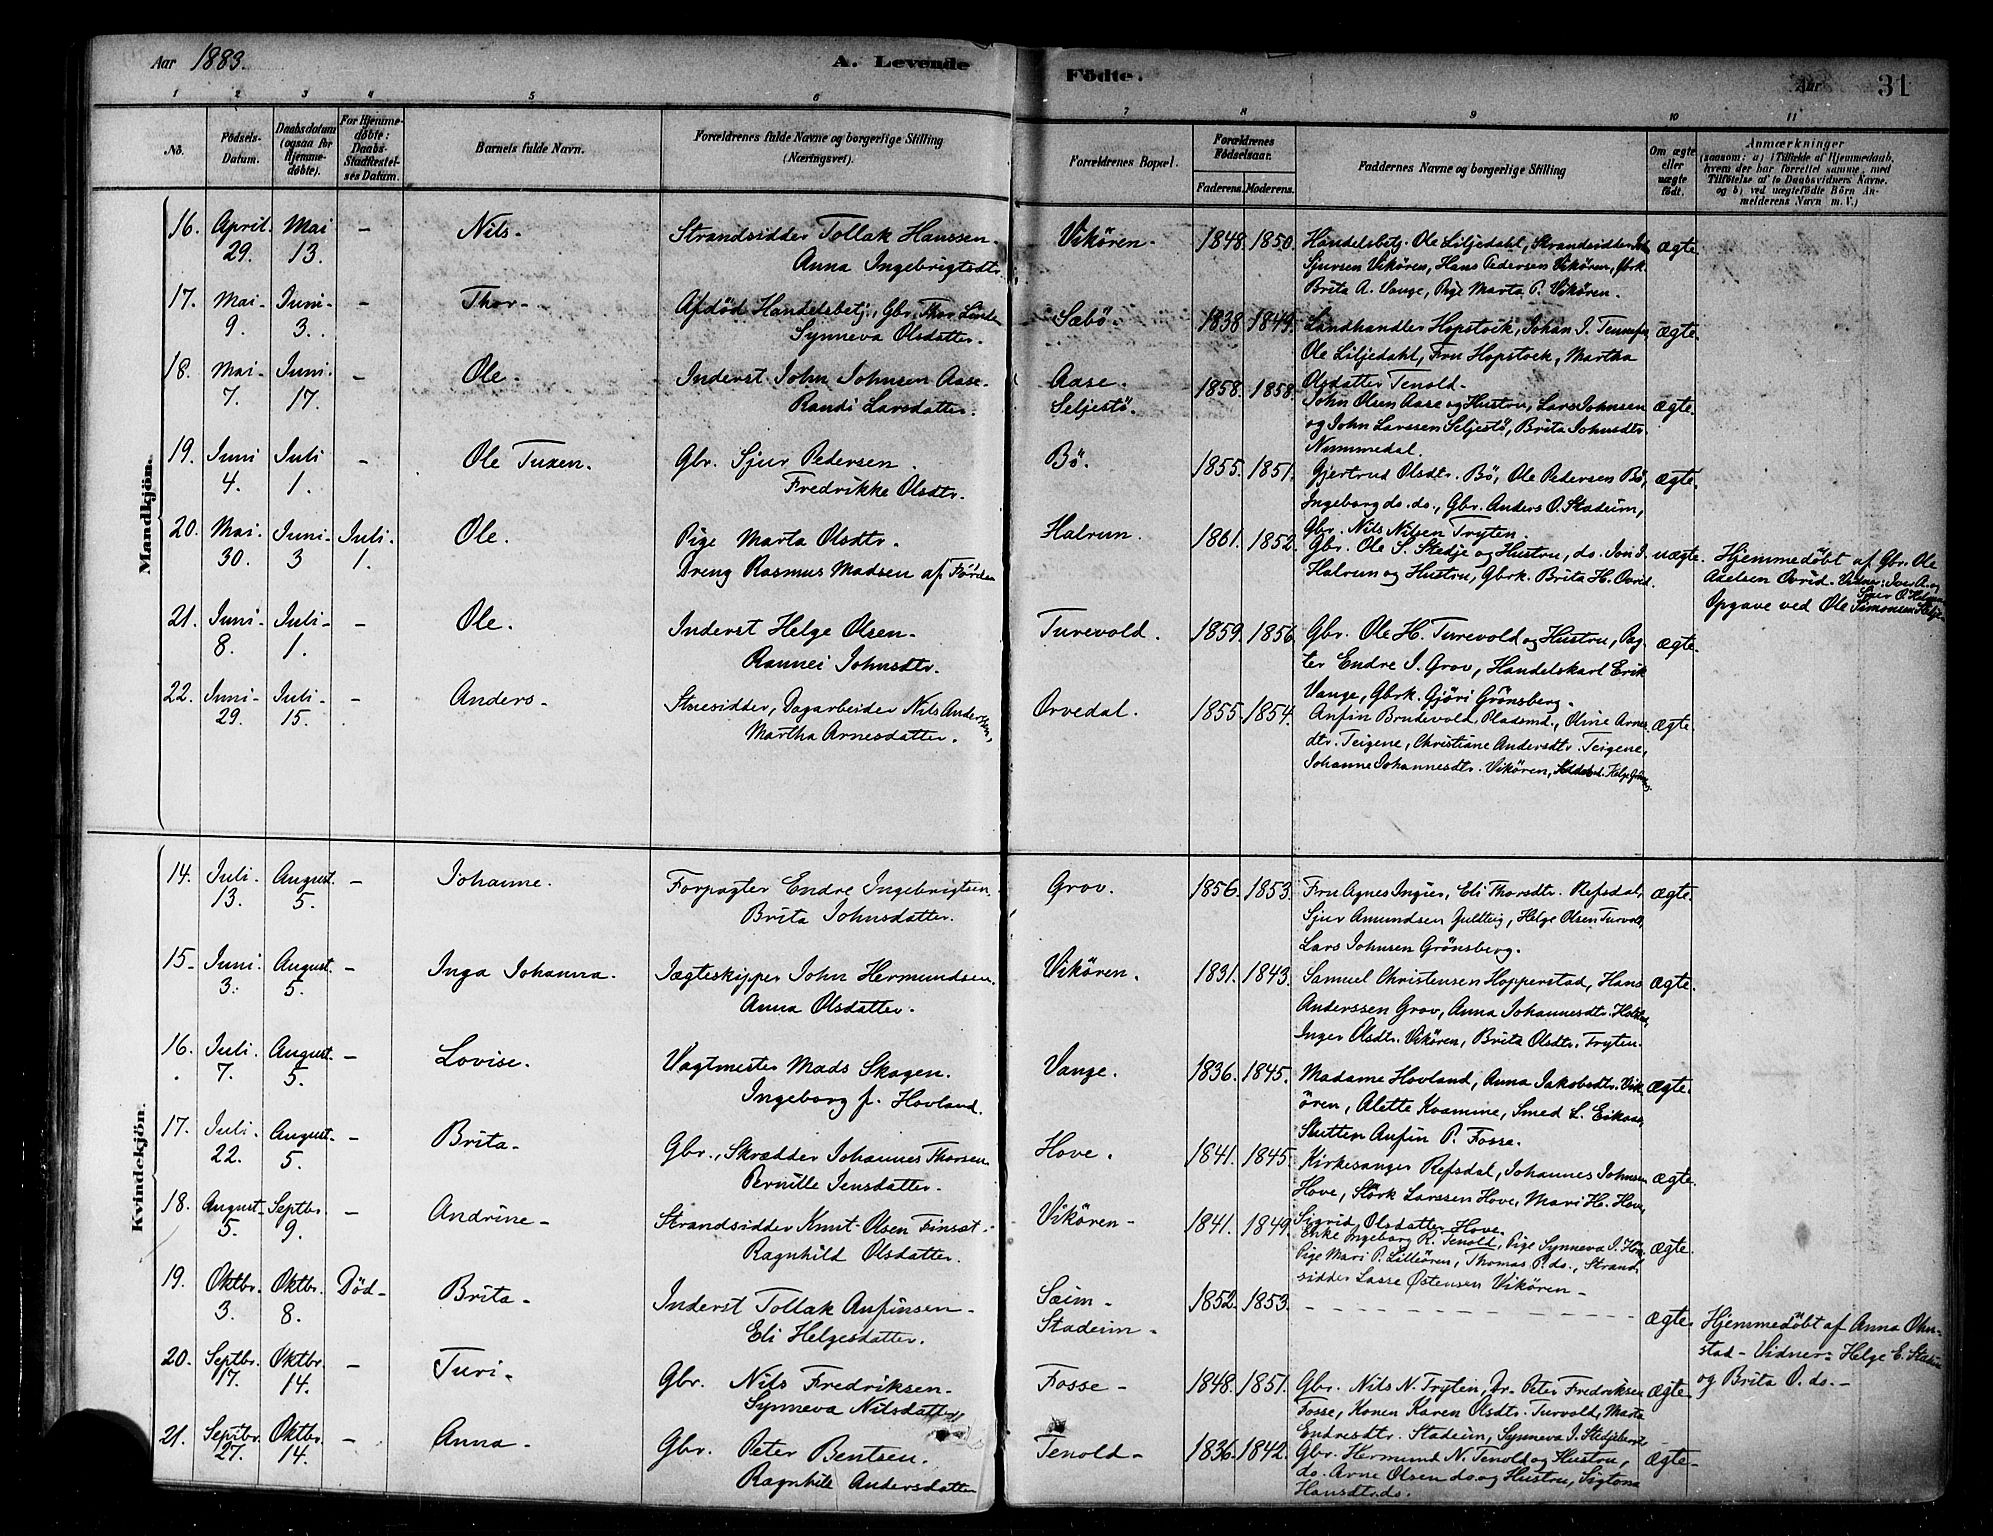 Aar 1883. A. Levende Födte. Aar 31
1 2 3 4 5 6 7 8 9 10 11
No. Fødsels-Datum. Daabsdatum (ogsaa for Hjemmedøbte). For Hjemmedøbte: Daabs-Stadfæstelses Datum. Barnets fulde Navn. Forældrenes fulde Navne og borgerlige Stilling (Næringsvei). Forældrenes Bopæl. Forældrenes Födselsaar. Faderens. Moderens. Faddernes Navne og borgerlige Stilling Om ægte eller uægte født. Anmærkninger (saasom: a) i Tilfælde af Hjemmedaab, hvem der har forrettet samme, med Tilføielse af to Daabsvidners Navne, og b) ved uægtefødte Børn Anmelderens Navn m. V.)
Mandkjön.
16. April 29. Mai 13. - Nils - Strandsidder Tollak Hanssen - Vikören - 1848. 1850. Handelsbetj. Ole Liljedahl, Strandsidder ægte.
Anna Ingebrigtsdtr. Sjursen Vikören, Hans Pedersen Vikören, Gbrk.
Brita A. Vange, Pige Marta P. Vikören.
17. Mai 9. Juni 3. - Thor - Afdød Handelsbetj., Gbr. Thor Sæbö. 1838 1849. Landhandler Hopstock, Johan I. ægte.
Synneva Olsdatter. Ole Liljedahl, Fru Hopstock, Martha
Olsdatter Tenold.
18. Mai 7. Juni 17. - Ole. Inderst John Johnsen Aase - Aase. 1858. 1858. John Olsen Aase og Hustru, Lars Johnsen ægte.
Randi Larsdatter. Seljestö. og John Larssen Seljestö, Brita Johnsdtr.
Nummedal.
19. Juni 4. Juli 1. - Ole Tuxen. Gbr. Sjur Pedersen. Bö. 1855. 1851. Gjertrud Olsdtr. Bö, Ole Pedersen Bö, ægte.
Fredrikke Olsdtr. Ingeborg do. do., Gbr. Anders O. Stadeim,
Gbr. Nils Nilsen Tryten.
20. Mai 30. Juni 3 Juli 1. Ole. Pige Marta Olsdtr. Halrun. 1861. 1852. Gbr. Ole S. Stedje og Hustru, do. Jon I. uægte. Hjemmedøbt af Gbr. Ole
Dreng Rasmus Madsen af Förde Halrun og Hustru, Gbrk. Brita H. Ovrid. Axelsen Ovrid. Vidner: Iver A. og
Opgave ved Ole Simonsen
21. Juni 8. Juli 1. - Ole. Inderst Helge Olsen. Turevold. 1859. 1856 Gbr. Ole H. Turevold og Hustru, Pag- ægte.
Rannei Johnsdtr. ter Endre I. Grov, Handelskarl Erik
Vange, Gbrk. Gjöri Grönsberg.
22. Juni 29. Juli 15. - Anders. Stuesidder, Dagarbeider Nils Anderssen, Orvedal. 1855. 1854. Anfin Brudevold Pladsmd., Oline Arnes- ægte.
Martha Arnesdatter. dtr. Teigene, Christiane Andersdtr. Teigene,
Johanne Johannesdtr. Vikören,
Kvindekjön.
14. Juli 13. August 5. - Johanne. Forpagter Endre Ingebrigtsen. Grov. 1856. 1853. Fru Agnes Ingier, Eli Thorsdtr. Refsdal, ægte.
Brita Johnsdatter. Sjur Amundsen Gullteig, Helge Olsen Turvold,
Lars Johnsen Grönsberg.
15. Juni 3. August 5. - Inga Johanna. Jægteskipper John Hermundsen. Vikören. 1831. 1843. Samuel Christensen Hopperstad, Hans ægte.
Anna Olsdatter. Anderssen Grov, Anna Johannesdtr.
Inger Olsdtr. Vikören, Brita Olsdtr. Tryten.
16. Juli 7. August 5. - Lovise. Vagtmester Mads Skagen. Vange. 1836. 1845. Madame Hovland, Anna Jakobsdtr. Vik- ægte.
Ingeborg f. Hovland. ören, Alette Kvamme, Smed L.
Anfin P. Fosse.
17. Juli 22. August 5. - Brita. Gbr., Skrædder Johannes Thorsen Hove. 1841. 1845. Kirkesanger Refsdal, Johannes Johnsen ægte.
Pernille Jensdatter. Hove, Störk Larssen Hove, Mari H. Hove,
Sigrid Olsdatter Hove.
18. August 5. Septbr. 9. - Andrine - Strandsidder Knut Olsen Finsæt. Vikören - 1841. 1849. Enke Ingeborg R. Tenold, Pige Synneva I. ægte.
Ragnhild Olsdatter. Pige Mari P. Lilleören, Thomas P. do., Strand-
sidder Lasse Östensen Vikören -
19. Oktbr. 3. Oktbr. 8. Død - Brita - Inderst Tollak Anfinsen - Sæim - 1852. 1853. - - - - ægte. Hjemmedøbt af Anna Ohn-
Eli Helgesdatter. Stadeim - stad - Vidner: Helge E. Stadeim
og Brita O. do. -
20. Septbr. 17. Oktbr. 14. - Turi - Gbr. Nils Fredriksen - Fosse - 1848. 1851. Gbr. Nils N. Tryten, Dr. Peter Fredriksen ægte.
Synneva Nilsdatter Fosse, Konen Karen Olsdtr. Turvold, Marta
Endresdtr. Stadeim, Synneva I.
21. Septbr. 27. Oktbr. 14. - Anna - Gbr. Peter Bentsen. Tenold - 1836. 1842. Gbr. Hermund N. Tenold og Hustru, ægte.
Ragnhild Andersdatter do. Arne Olsen do. og Hustru, Sigtona
Hansdtr. do.